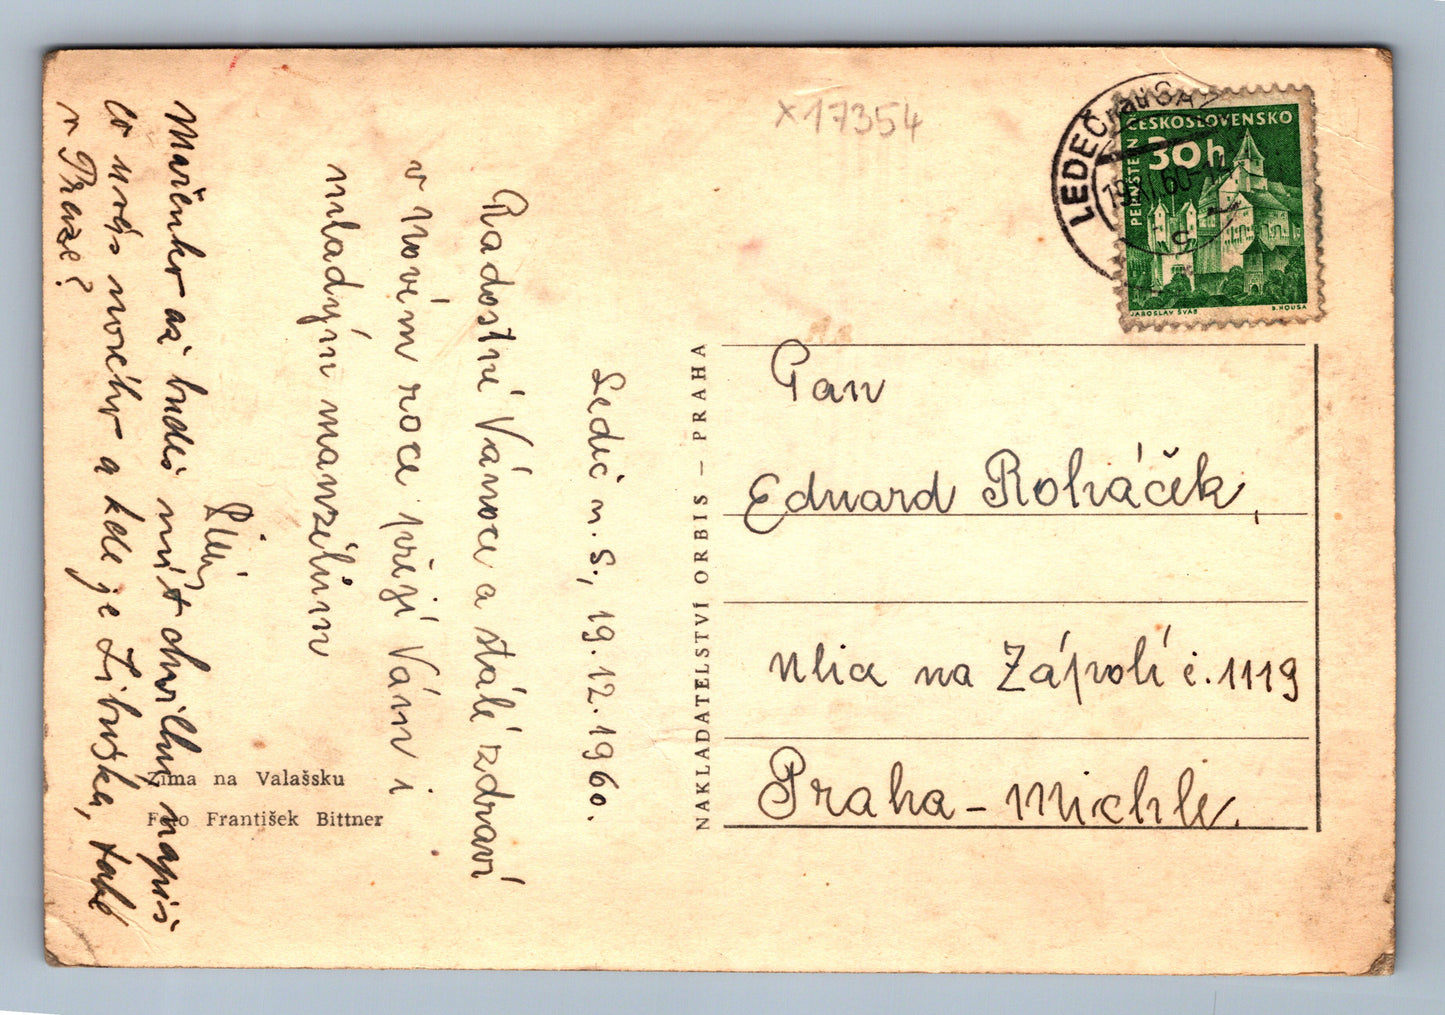 x17354
LEDEČ nad SÁZ
19.XII.60-14
c
ČESKOSLOVENSKO
30h
PERNŠTEJN
JAROSLAV ŠVÁB
Pan
Eduard Roháček,
ulica na Zápolí č. 1119
Praha - Michle.
NAKLADATELSTVÍ ORBIS – PRAHA
Ledeč n. S., 19.12.1960.
Radostné Vánoce a stálé zdraví
v Novém roce přejí Vám i
mladým manželům
Mařenko až budeš mít chvilku, napiš
co u vás nového a kde je Libuška, také
v Praze?
Zima na Valašsku
Foto František Bittner